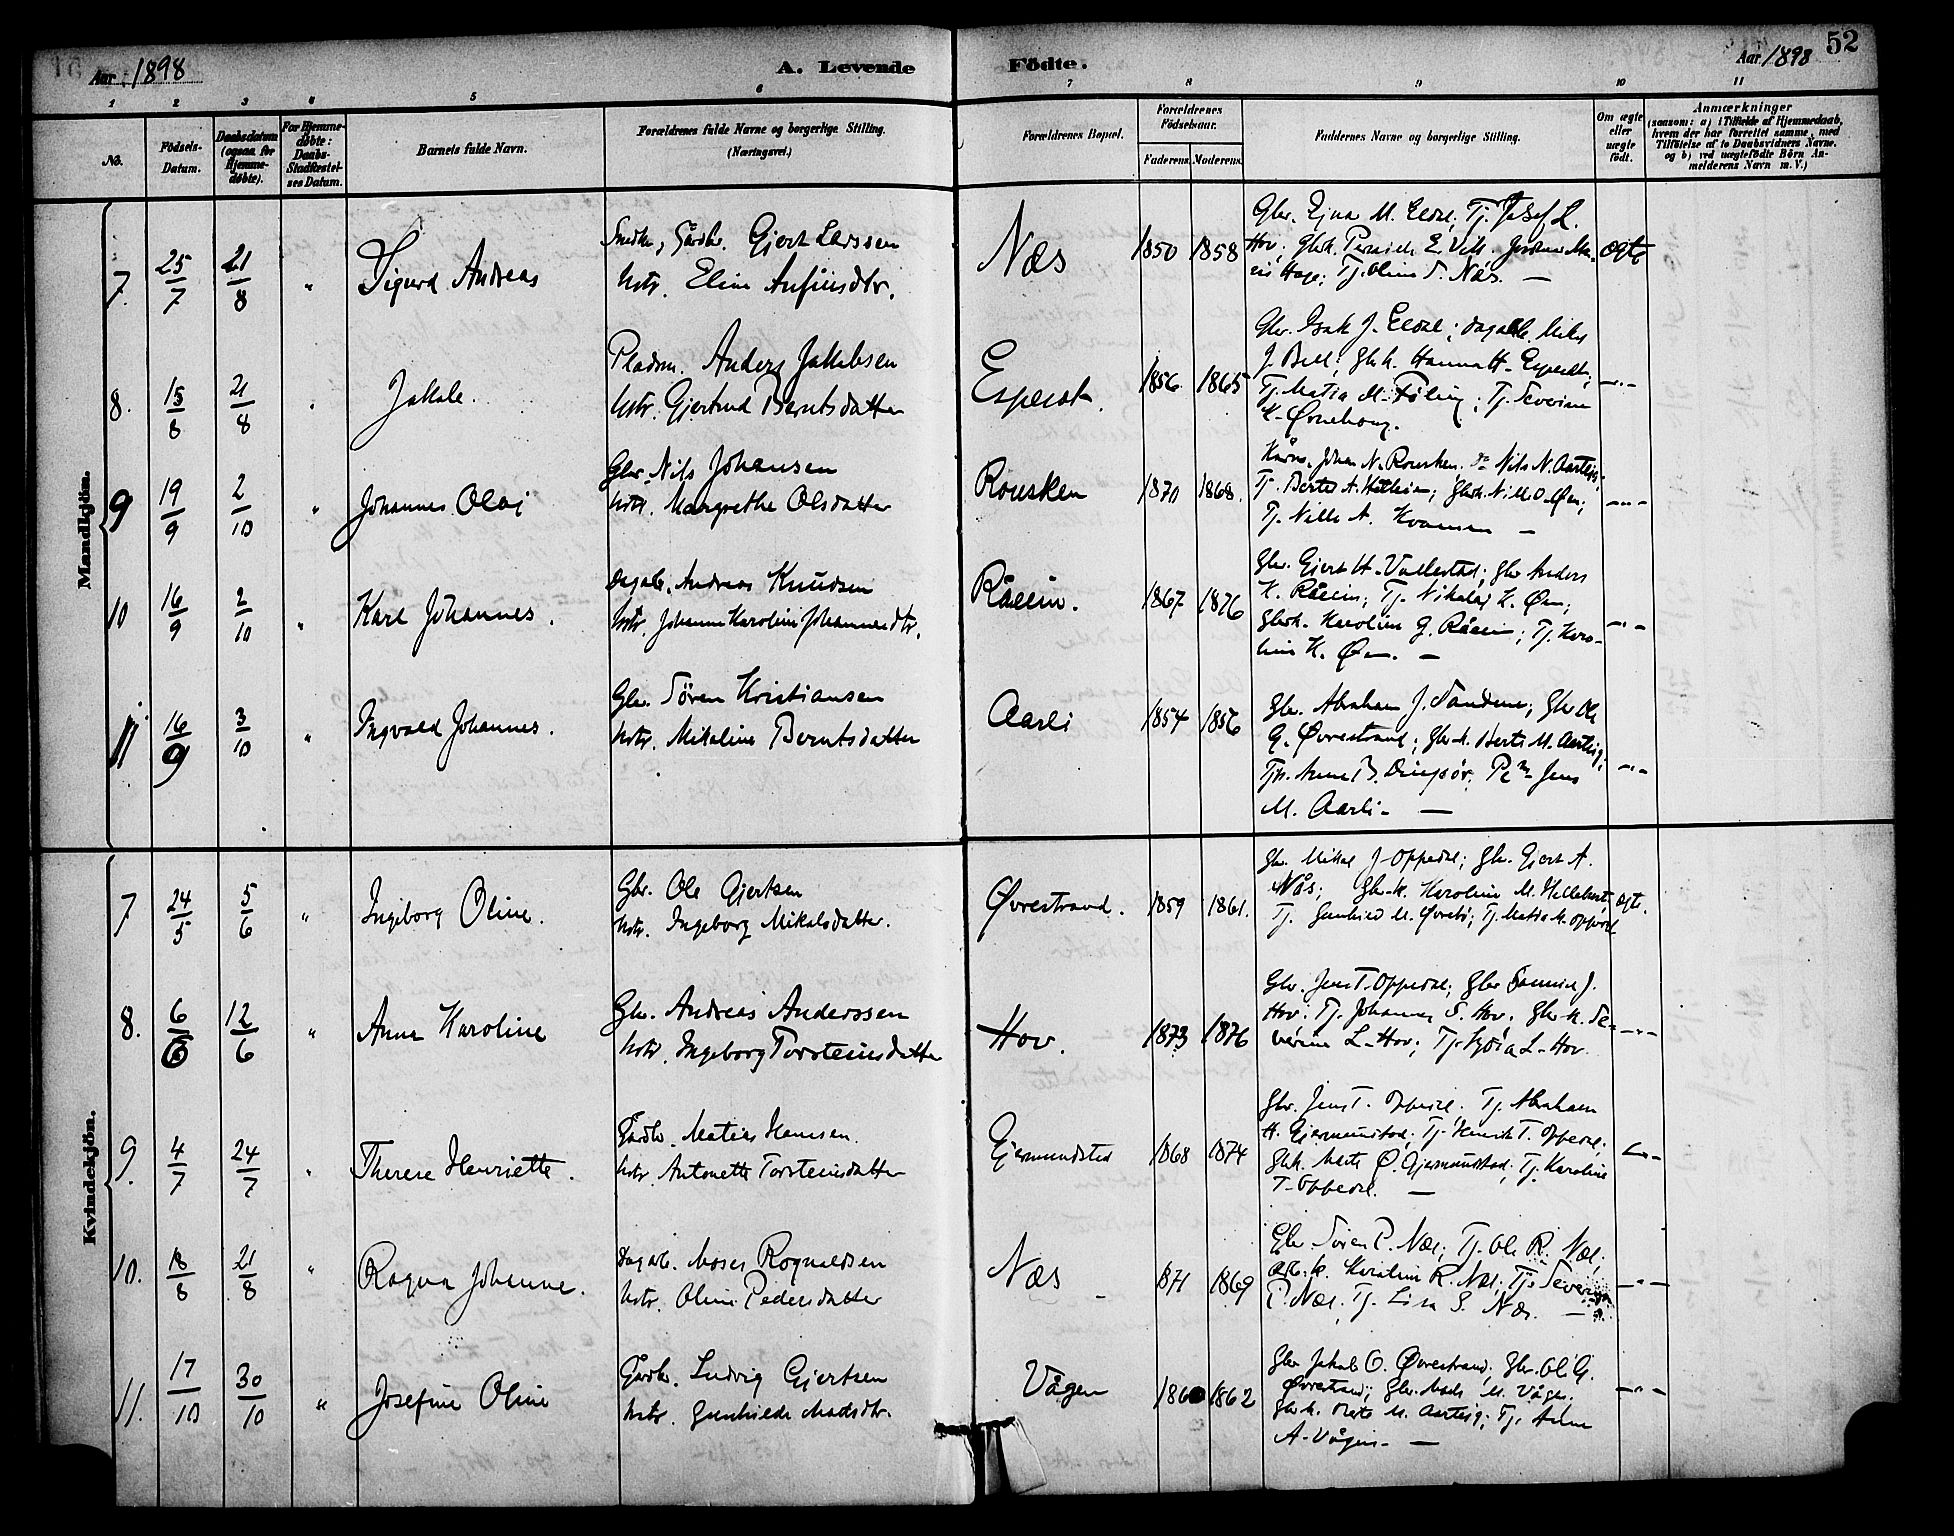 Aar 1898
A. Levende Födte.
Aar 1898
52
1 2 3 4 5 6 7 8 9 10 11
No.
Födsels-Datum.
Daabsdatum (ogsaa for Hjemme-døbte).
For Hjemme-døbte: Daabs-Stadfæstel-ses Datum.
Barnets fulde Navn.
Forældrenes fulde Navne og borgerlige Stilling. (Næringsvei.)
Forældrenes Bopæl.
Forældrenes Födselsaar.
Faderens. Moderens.
Faddernes Navne og borgerlige Stilling.
Om ægte eller uægte født.
Anmærkninger
(saasom: a) i Tilfælde af Hjemmedaab, hvem der har forrettet samme, med Tilföielse af to Daabsvidners Navne. og b) ved uægtefödte Börn An-melderens Navn m. V.)
Mandkjön.
7. 25/7 21/8 " Sigurd Andreas
Smedm, Gårdbr. Gjert Larssen
hstr. Eline Anfinsdtr.
Næs 1850 1858
Tj. Josef L.
Hov; Tj. Oline S. Næs. —
ægte
8. 15/8 21/8 " Jakob.
Pladsm. Anders Jakobsen
hstr. Gjertrud Berntsdatter
Espeset. 1856 1865
Gbr. Isak J. Eldal;
Tj. Severine
K. Ørnehaug.
-"-
9 19/9 2/10 " Johannes Olai
Gbr. Nils Johansen
hstr. Margrethe Olsdatter
Rousken 1870 1868.
Johan N. Rousken, Do Nils N. Aarteig;
Tj. Berte A.
Tj. Nille A. Kvamen —
-"-
10 16/9 2/10 " Karl Johannes.
Dagarb. Andreas Knudsen
hstr. Johanne Karoline Johannesdtr.
Råeim. 1867 1876
Gbr. Gjert H. Vallestad; Gbr Anders
K. Råeim; Tj. Nikolai K. Øen;
Gbrk. Karoline G. Råeim; Tj. Karo-
line K. Øen. —
-"-
11 16/9 3/10 " Ingvald Johannes.
Gbr. Sören Kristiansen
hstr. Mikaline Berntsdatter
Aarli 1854 1856
Gbr. Abraham J. Sandene; Gbr Ole
G. Øvrestrand; Gbr.k. Berte M. Aarteig;
Anne B. Jens
M. Aarli- —
-"-
Kvindekjön.
7 24/5 5/6 " Ingeborg Oline.
Gbr. Ole Gjertsen
hstr. Ingeborg Mikalsdatter.
Øvrestrand. 1859 1861.
Gbr. Mikal J. Oppedal; Gbr. Gjert A.
Nås; Gbr.k. Karoline M.
Tj. Gunhild M. Øvrebö; Tj. Matia M. Oppedal
ægte.
8. 6/6 12/6 " Anna Karoline
Gbr. Andreas Anderssen
hstr. Ingeborg Torsteinsdatter
Hov. 1873 1876
Gbr. Jens T. Oppedal; Gbr Samuel J.
Hov; Tj. Johannes S. Hov; Gbr.k. Se-
verine L. Hov; Tj. Lydia L. Hov.
-"-
9. 4/7 24/7 " Therese Henriette.
Gårdbr. Matias Hansen.
hstr. Antonette Torsteinsdatter
Gjermundstad 1868 1874
Gbr. Jens T. Oppedal; Tj. Abraham
H. Gjermundstad; Tj. Henrik T. Oppedal;
Gbrk. Merte O. Gjermundstad; Tj. Karoline
T. Oppedal. —
-"-
10. 18/8 21/8 " Ragna Johanne.
Dagarb. Moses Rognaldsen
hstr. Oline Pedersdatter
Næs 1871 1869
Gbr. Sören P. Næs; Tj. Ole R. Næs;
Karoline R. Næs; Tj. Severine
P. Næs; Tj. Lisa S. Næs. —
-"-
11. 17/10 30/10 " Josefine Oline
Gårdbr. Ludvig Gjertsen
hstr. Gunhilde Madsdtr.
Vågen 1860 1862
Gbr Jakob O. Øvrestrand; Gbr. Ole G.
Øvrestrand; Gbr. Mads M. Vågen;
Gbr.k. Berte M. Aarteig; Tj. Anne
A. Vågen- —
-"-